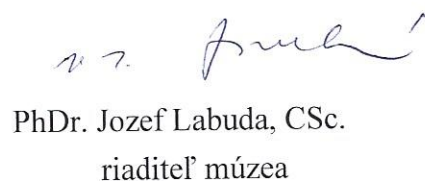 PhDr. Jozef Labuda, CSc.
riaditeľ múzea